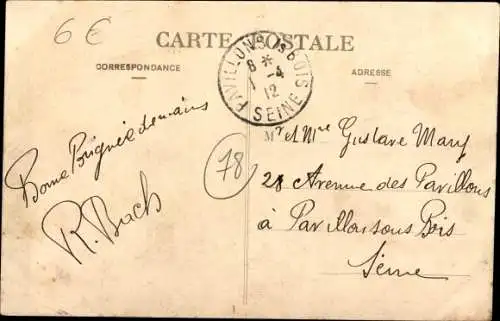 6 €
CARTE POSTALE
CORRESPONDANCE
ADRESSE
PAVILLONS Is BOIS
8 *
1 -4
12
SEINE
Bonne Poignée de mains
R. Bach
78
Mr & Mme Gustave Mary
28 Avenue des Pavillons
à Pavillons sous Bois
Seine